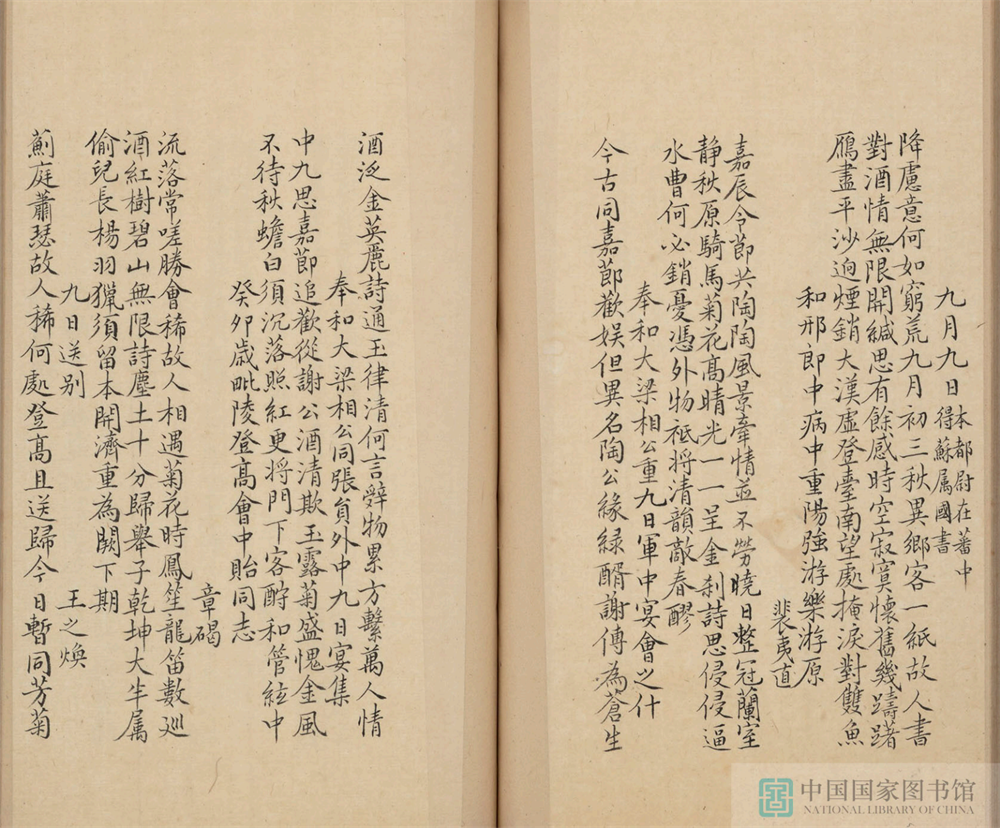 九月九日
本都尉在蕃中
得蘇属國書
降慮意何如窮荒九月初三秋異鄉客一紙故人書
對酒情無限開緘思有餘感時空寂寞懷舊幾躊躇
鴈盡平沙逈煙銷大漢虛登臺南望處掩淚對雙魚
和邢郎中病中重陽強游樂游原
裴夷直
嘉辰令節共陶陶風景牽情並不勞曉日整冠蘭室
静秋原騎馬菊花髙晴光一一呈金刹詩思侵侵逼
水曹何必銷憂憑外物祗將清韻敵春醪
奉和大梁相公重九日軍中宴會之什
今古同嘉節歡娱但異名陶公緣緑醑謝傅為蒼生
酒泛金英麗詩通玉律清何言辤物累方繫萬人情
奉和大梁相公同張員外中九日宴集
中九思嘉節追歡從謝公酒清欺玉露菊盛愧金風
不待秋蟾白須沉落照紅更將門下客酧和管絃中
癸卯歲毗陵登髙會中貽同志
章碣
流落常嗟勝會稀故人相遇菊花時鳳笙龍笛數巡
酒紅樹碧山無限詩塵土十分歸舉子乾坤大半属
偷兒長楊羽獵須留本開濟重為闕下期
九日送别 王之煥
薊庭蕭瑟故人稀何處登髙且送歸今日暫同芳菊
中国国家图书馆
NATIONAL LIBRARY OF CHINA